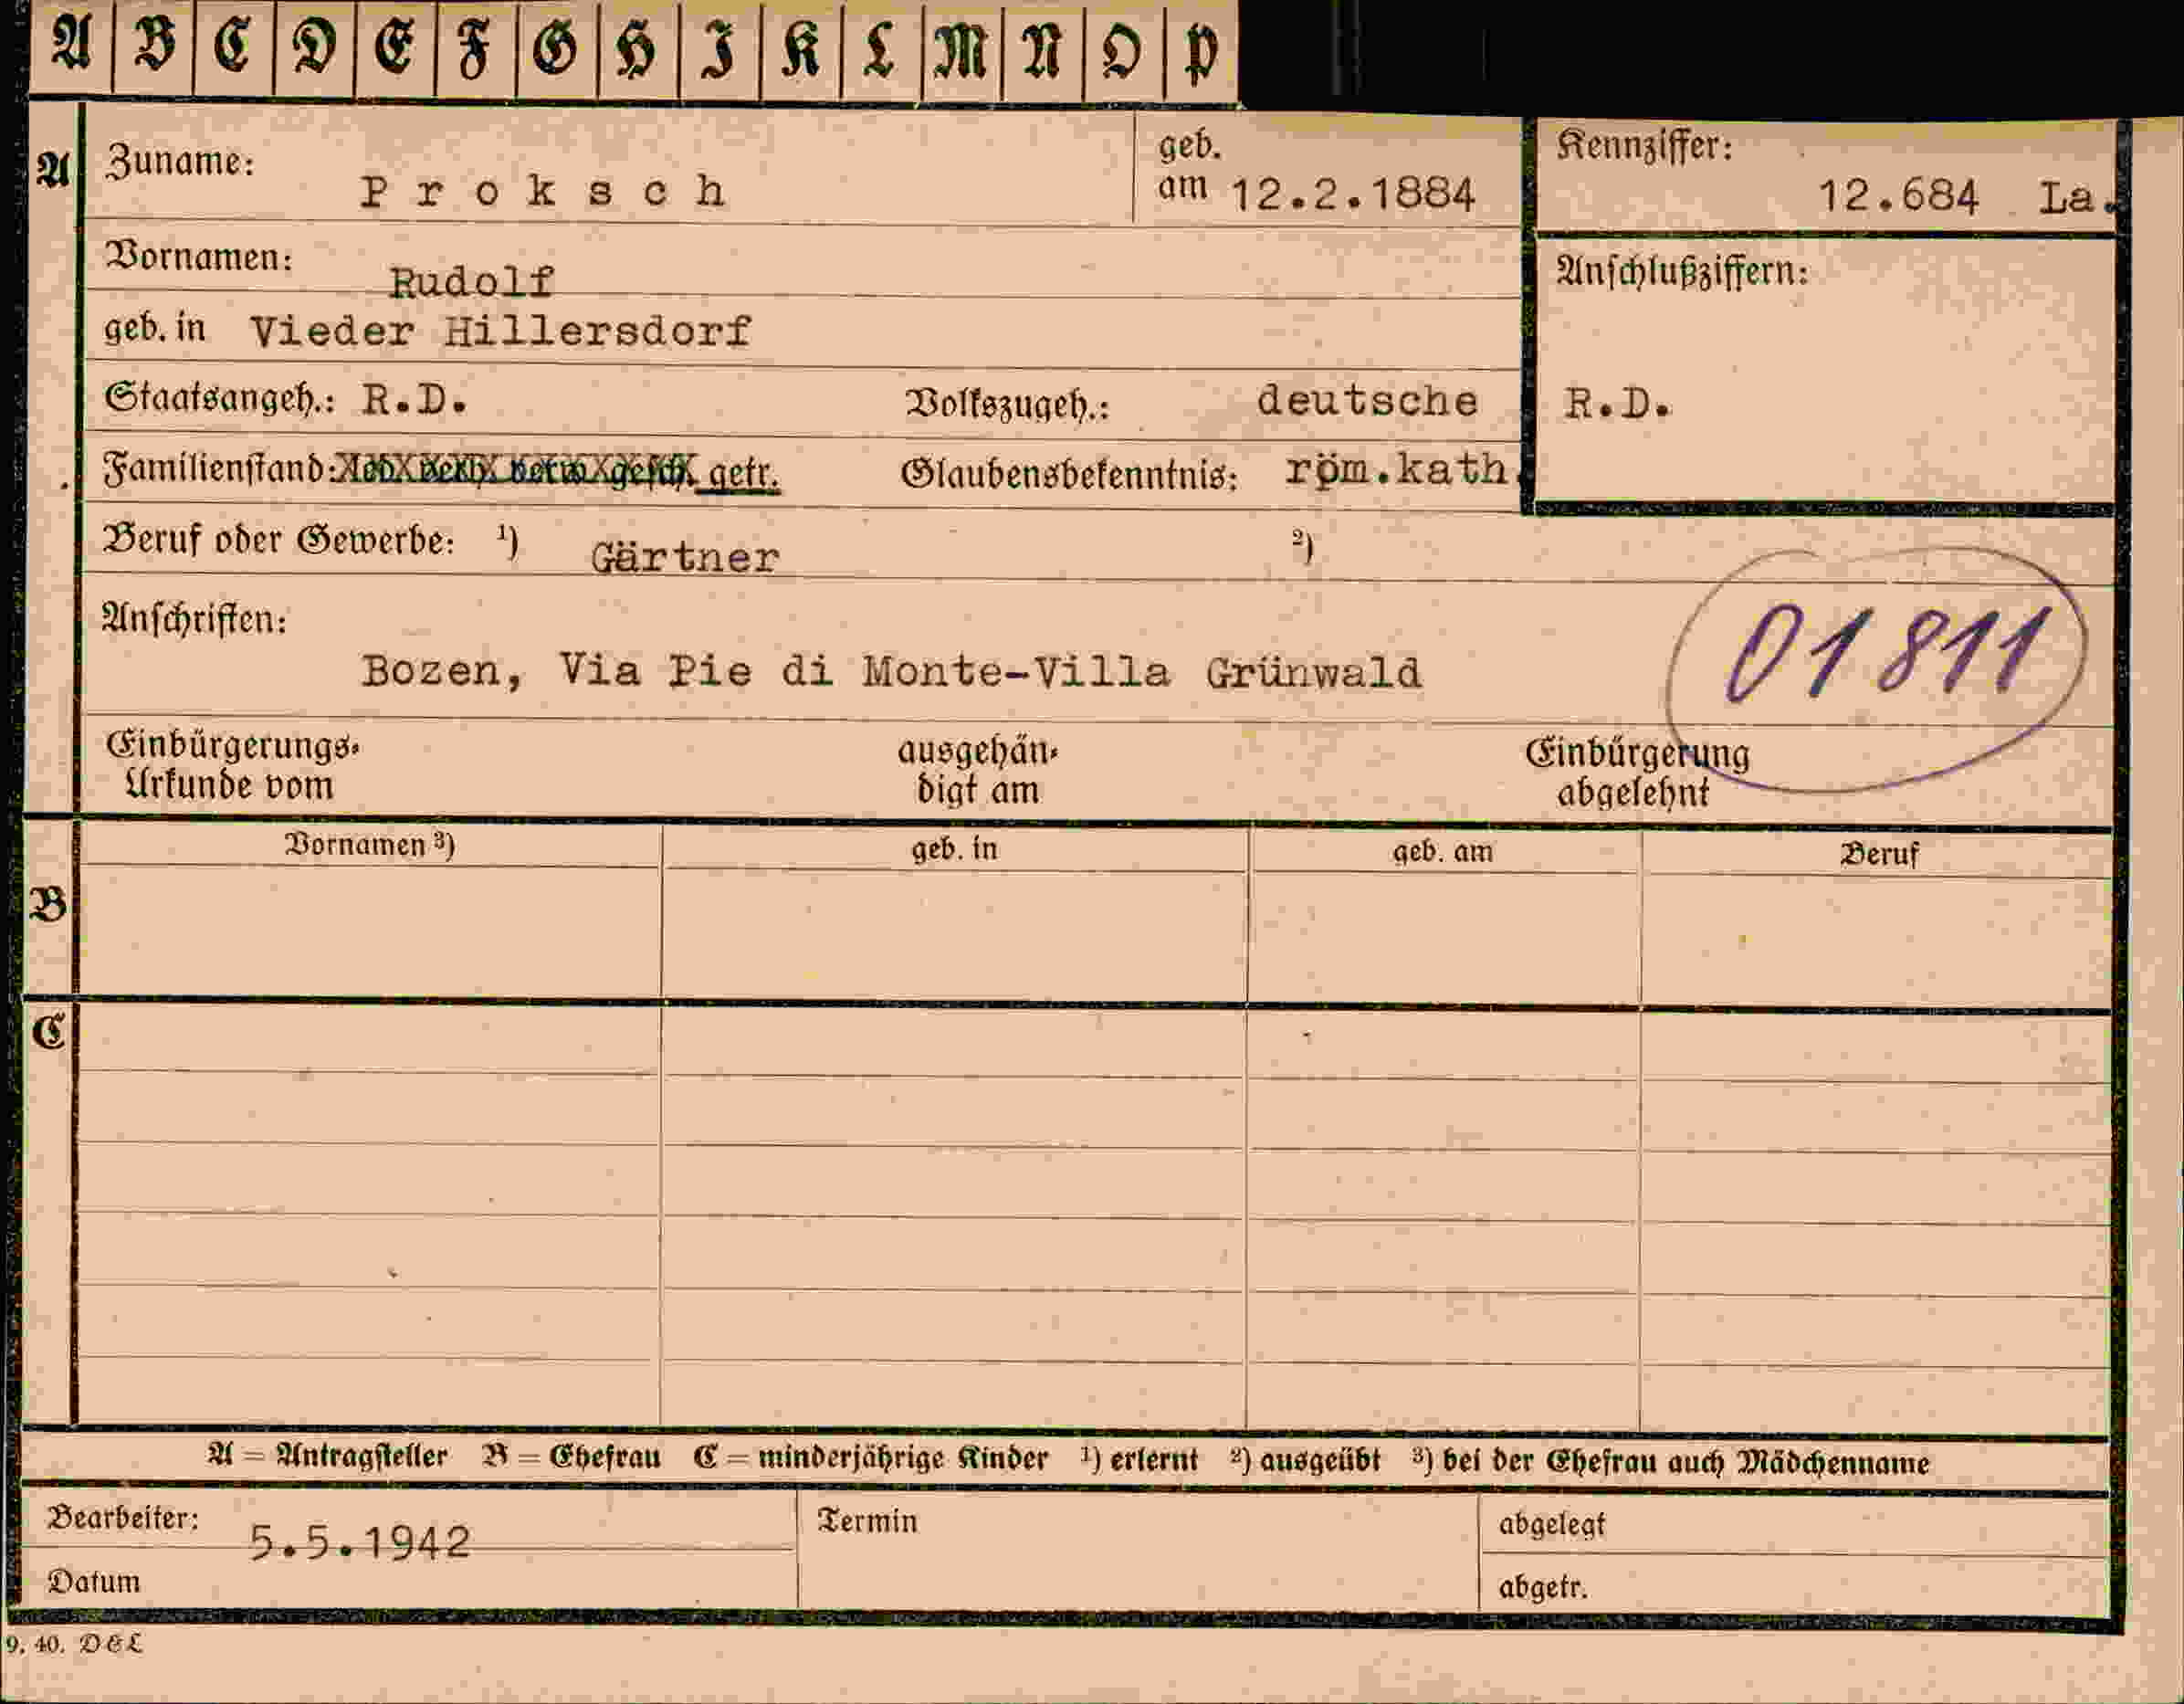 A B C D E F G H I K L M N O P
A
Zuname: Proksch
geb. am 12.2.1884
Kennziffer: 12.684 La.
Vornamen: Rudolf
Anschlußziffern:
geb. in Vieder Hillersdorf
Staatsangeh.: R.D. Volkszugeh.: deutsche
R.D.
Familienstand: led. verh. verw. gesch. getr. Glaubensbekenntnis: röm.kath.
Beruf oder Gewerbe: ¹) Gärtner ²)
Anschriften:
01811
Bozen, Via Pie di Monte-Villa Grünwald
Einbürgerungs-
Urkunde vom
ausgehän-
digt am
Einbürgerung
abgelehnt
Vornamen ³) geb. in geb. am Beruf
B
C
A = Antragsteller B = Ehefrau C = minderjährige Kinder ¹) erlernt ²) ausgeübt ³) bei der Ehefrau auch Mädchenname
Bearbeiter: 5.5.1942
Termin
abgelegt
Datum
abgetr.
9. 40. DEL